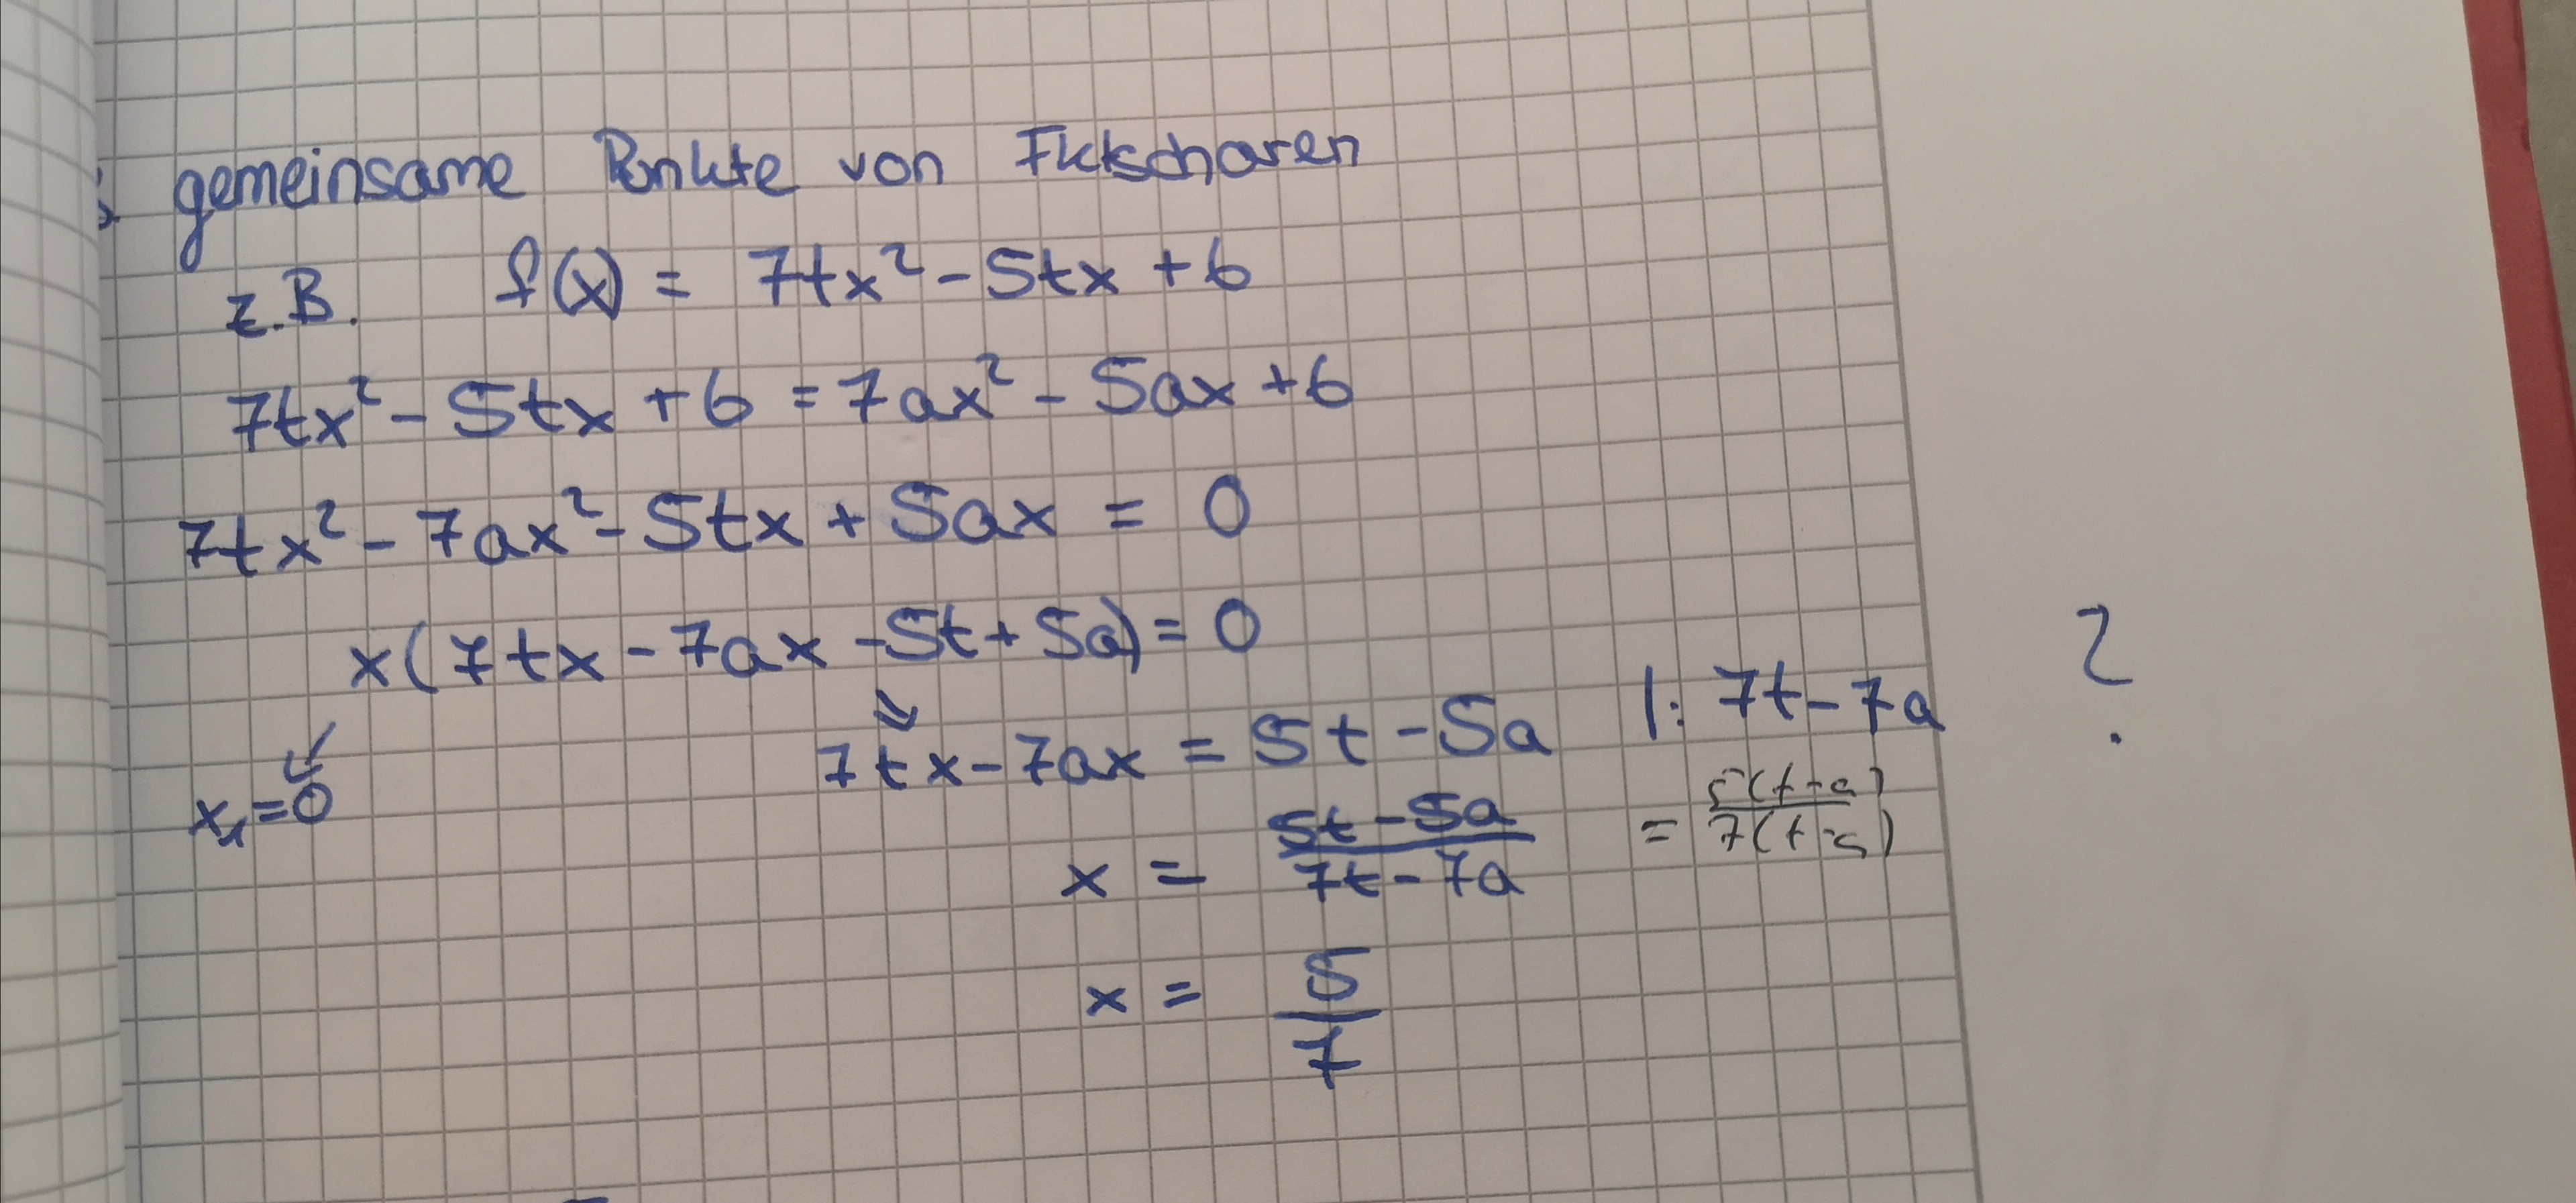 gemeinsame Punkte von Fktscharen
z.B. f(x) = 7tx² - 5tx + 6
7tx² - 5tx + 6 = 7ax² - 5ax + 6
7tx² - 7ax² - 5tx + 5ax = 0
x(7tx - 7ax - 5t + 5a) = 0
?
x₁ = 0
7tx - 7ax = 5t - 5a |: 7t - 7a
x = 5t - 5a / 7t - 7a = 5(t-a) / 7(t-a)
x = 5/7